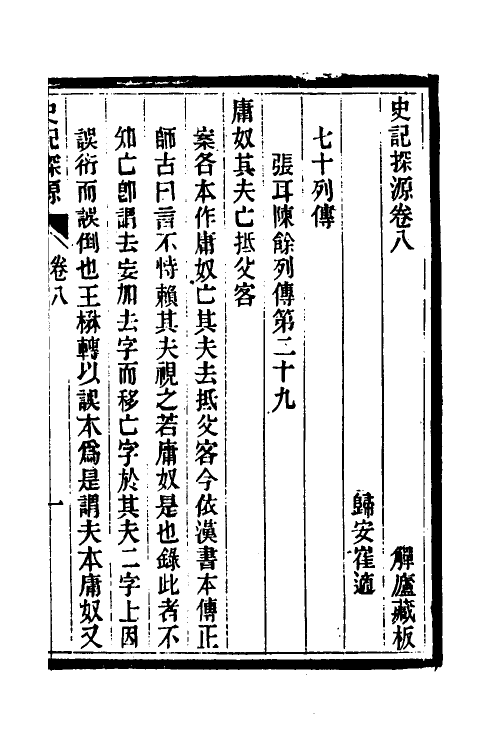 史記探源卷八
觶廬藏板
歸安崔適
七十列傳
張耳陳餘列傳第二十九
庸奴其夫亡抵父客
案各本作庸奴亡其夫去抵父客今依漢書本傳正
師古曰言不恃賴其夫視之若庸奴是也錄此者不
知亡卽謂去妄加去字而移亡字於其夫二字上因
誤衍而誤倒也王楙轉以誤本爲是謂夫本庸奴又
史記探源
卷八
一